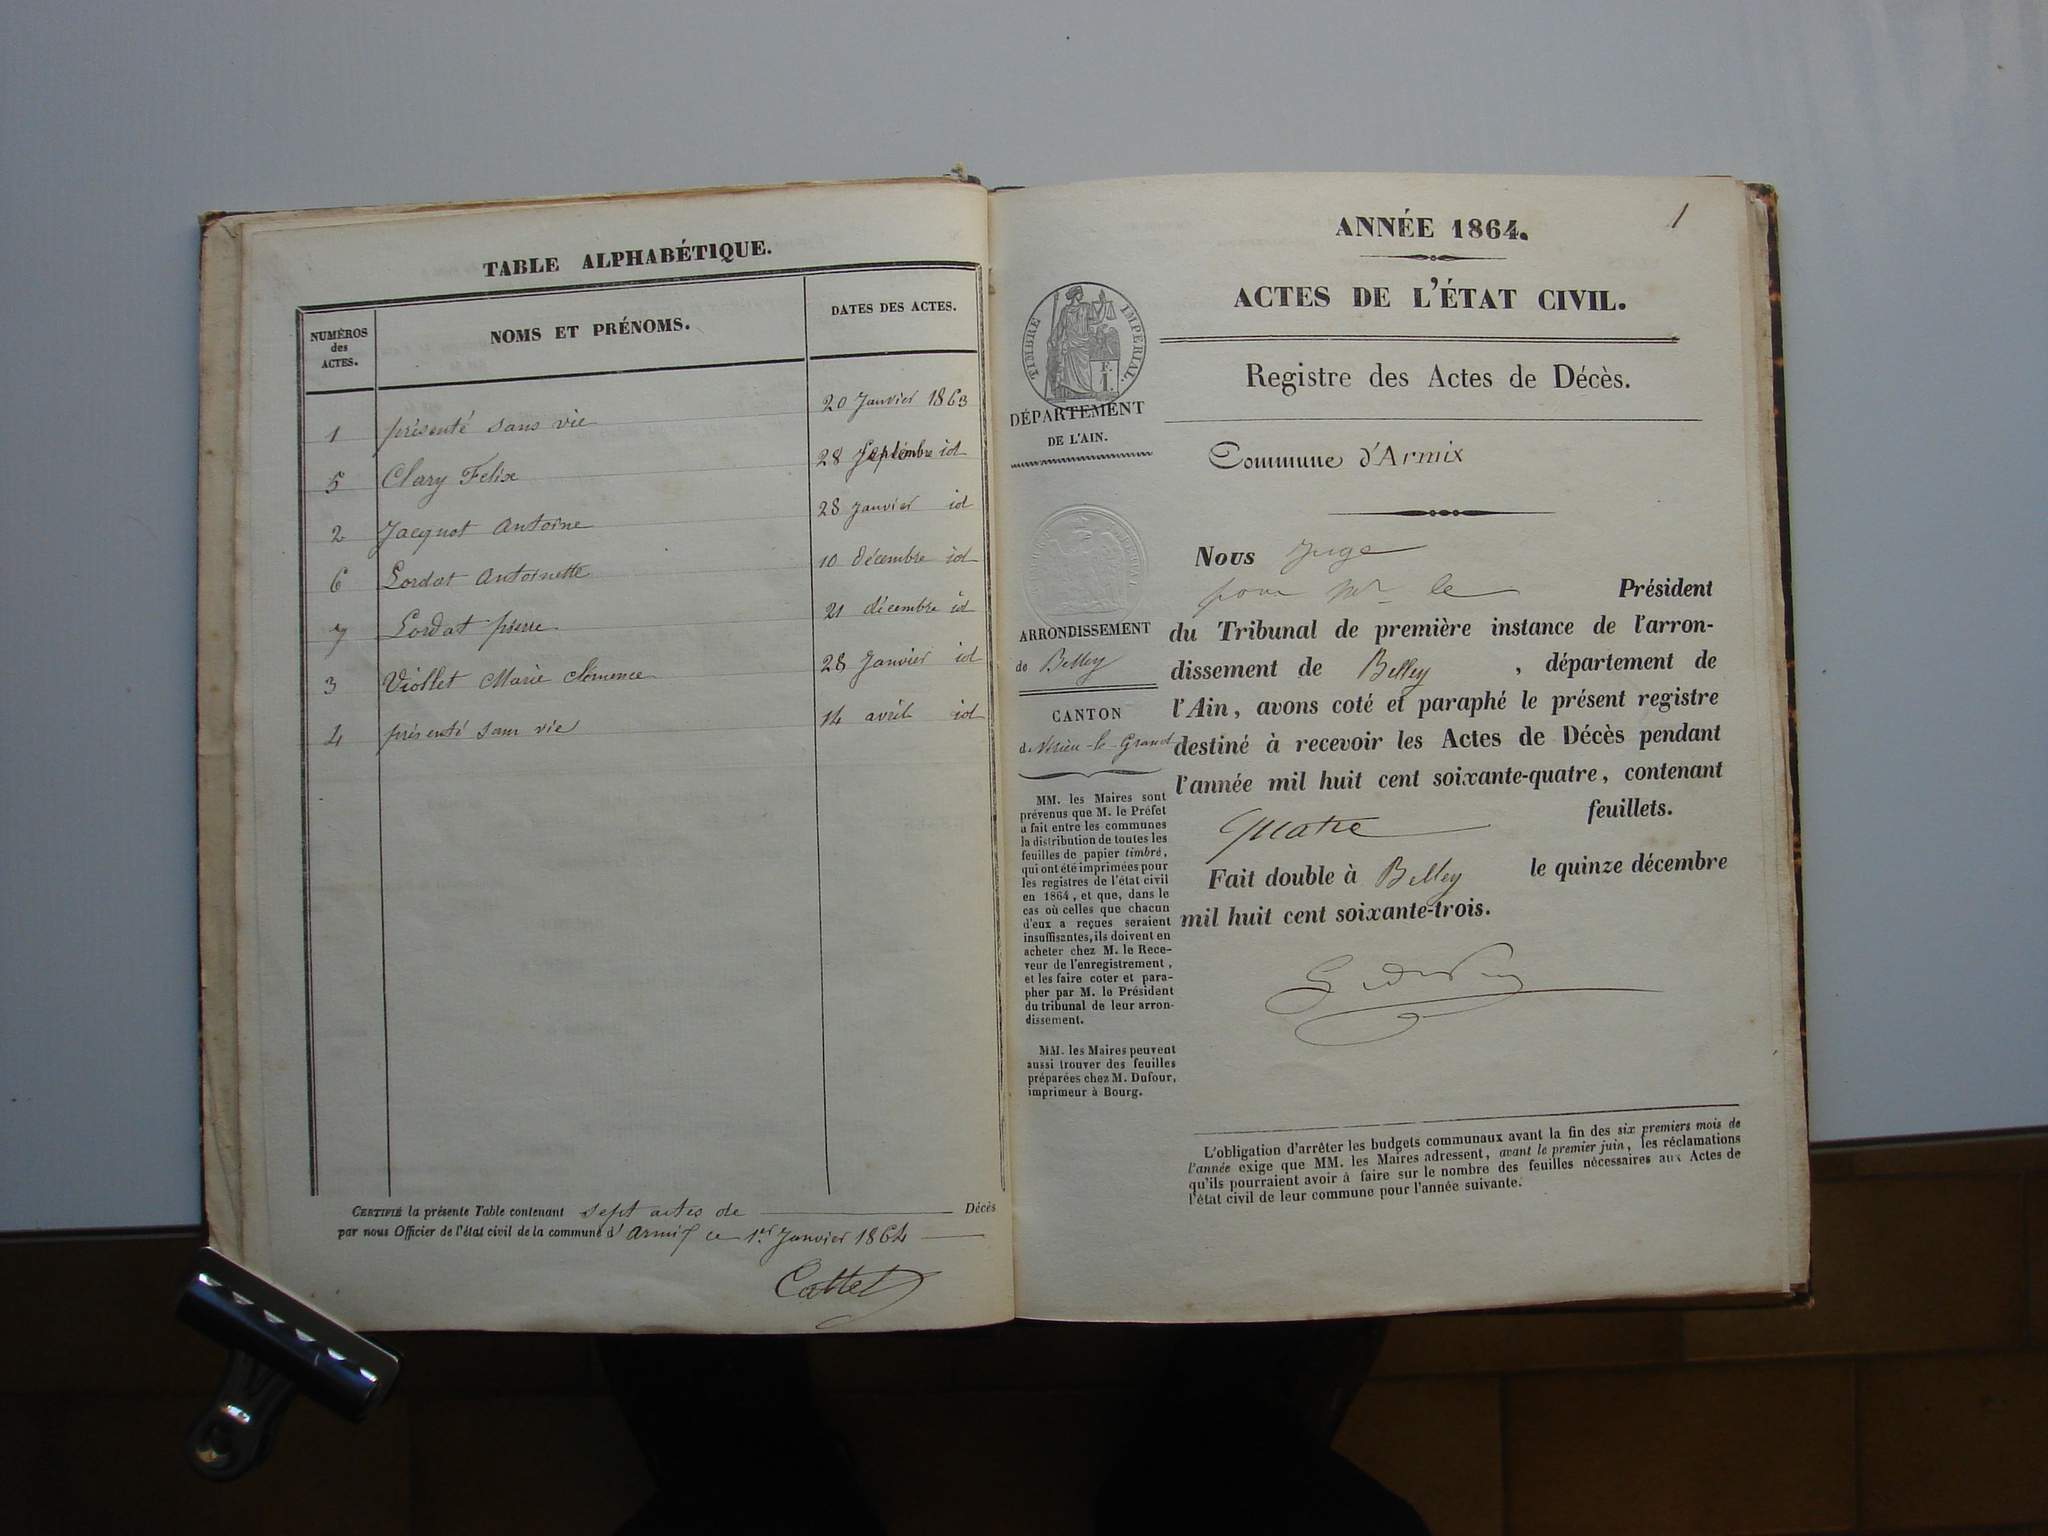 TABLE ALPHABÉTIQUE.
NUMÉROS des ACTES. NOMS ET PRÉNOMS. DATES DES ACTES.
1 présenté sans vie 20 Janvier 1863
5 Clary Felix 28 Septembre id
2 Jacquot Antoine 28 Janvier id
6 Lordat Antoinette 10 décembre id
7 Lordat pierre 21 décembre id
3 Viollet Marie Clémence 28 Janvier id
4 présenté sans vie 14 avril id
CERTIFIÉ la présente Table contenant sept actes de Décès
par nous Officier de l'état civil de la commune d'Armix ce 1er Janvier 1864
Cattet
1
ANNÉE 1864.
ACTES DE L'ÉTAT CIVIL.
Registre des Actes de Décès.
TIMBRE IMPÉRIAL.
F.
1.
DÉPARTEMENT
DE L'AIN.
ARRONDISSEMENT
de Belley
CANTON
de Virieu-le-Grand
MM. les Maires sont
prévenus que M. le Préfet
a fait entre les communes
la distribution de toutes les
feuilles de papier timbré,
qui ont été imprimées pour
les registres de l'état civil
en 1864, et que, dans le
cas où celles que chacun
d'eux a reçues seraient
insuffisantes, ils doivent en
acheter chez M. le Rece-
veur de l'enregistrement,
et les faire coter et para-
pher par M. le Président
du tribunal de leur arron-
dissement.
MM. les Maires peuvent
aussi trouver des feuilles
préparées chez M. Dufour,
imprimeur à Bourg.
Commune d'Armix
Nous Juge
pour Mr le Président
du Tribunal de première instance de l'arron-
dissement de Belley, département de
l'Ain, avons coté et paraphé le présent registre
destiné à recevoir les Actes de Décès pendant
l'année mil huit cent soixante-quatre, contenant
quatre feuillets.
Fait double à Belley le quinze décembre
mil huit cent soixante-trois.
L'obligation d'arrêter les budgets communaux avant la fin des six premiers mois de
l'année exige que MM. les Maires adressent, avant le premier juin, les réclamations
qu'ils pourraient avoir à faire sur le nombre des feuilles nécessaires aux Actes de
l'état civil de leur commune pour l'année suivante.